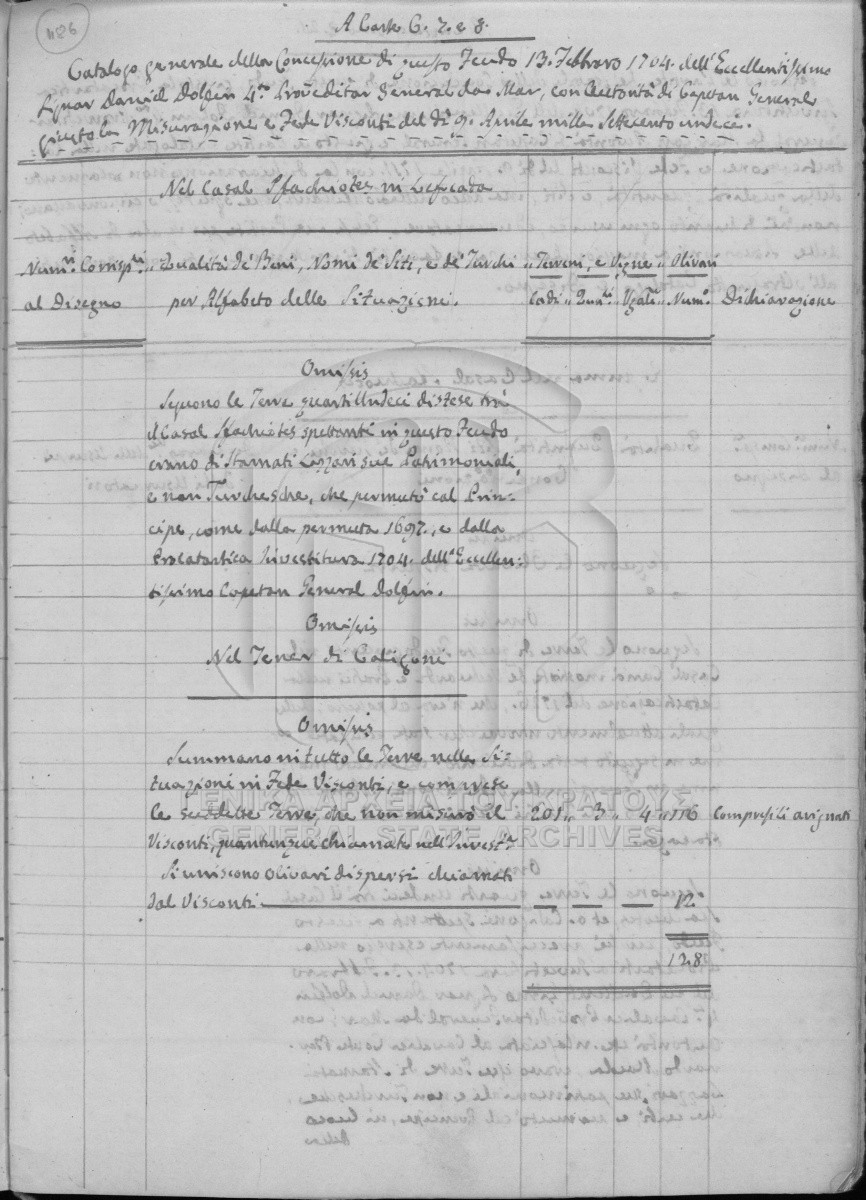 1186
A Carte 6. 7. e 8.
Catalogo generale della Concessione di questo Feudo 13. Febbraro 1704. dell'Eccellentissimo
Signor Daniel Dolfin 4.to Proveditor General da Mar, con Auttorità di Capetan General
giusto la Misurazione e Fede Visconti del dì 9. Aprile mille Settecento undeci.
Nel Casal Sfachiotes in Leucata
Num.ri Corrisp.ti „ Qualità de' Beni, Nomi de' Siti, e de' Turchi „ Terreni, e Vigne „ Olivari
al Disegno per Alfabeto delle Situazioni. Cadi „ „ „ Num.o Dichiarazione
Omissis
Seguono le Terre quarti Undeci distese trà
il Casal Sfachiotes spettanti in questo Feudo
erano di Stamati Lazzari sue Patrimoniali
e non Turchesche, che permutò col Prin-
cipe, come dalla permuta 1697., e dalla
Procatartica Investitura 1704. dell'Eccellen-
tissimo Capetan General Dolfin.
Omissis
Nel Tener di Caligoni
Omissis
Summano in tutto le Terre nelle Si-
tuazioni in Fede Visconti, e comprese
le suddette Terre, che non misurò il 201 „ 3 „ 4 „ 116 Compresi li
Visconti, quantunque chiamate nell'Invest.a
Si uniscono Olivari dispersi chiamati
dal Visconti — — — — 12
128
ΓΕΝΙΚΑ ΑΡΧΕΙΑ ΤΟΥ ΚΡΑΤΟΥΣ
GENERAL STATE ARCHIVES